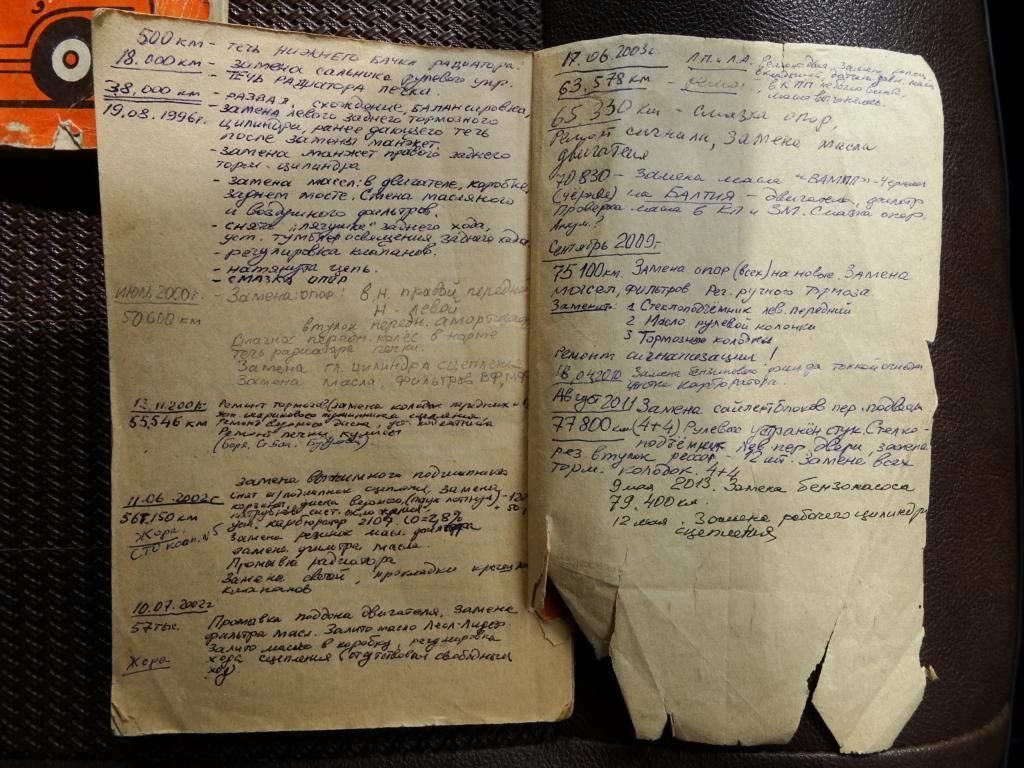 500 км - течь нижнего бачка радиатора.
18.000 км - Замена сальника рулевого упр.
- течь радиатора печки.
38.000 км - развал, схождение, балансировка,
19.08.1996г. - замена левого заднего тормозного
цилиндра, ранее дающего течь
после замены манжет.
- Замена манжет правого заднего
торм. цилиндра
- Замена масел: в двигателе, коробке,
заднем мосте. Смена масляного
и воздушного фильтров.
- снята "лягушка" заднего хода,
уст. тумблер освящения заднего хода
- регулировка клапанов.
- натянута цепь.
- смазка опор
Июль 2000г. - Замена опор: в.н. правой передней
н - левой
50.600 км
втулок передн. амортизац
передн. колес в норме
течь радиатора печки.
Замена гл. цилиндра сцепления
Замена масла, фильтров
13.11.2001г. Ремонт тормозов (замена колодок передних и
55,546 км
Ремонт печки
Замена выжимного подшипника
11.06.2002г сцепления, замена
56.150 км
уст. карбюратор 2107 CO=2,8%
Жора Замена резинок масл.
СТО кооп. №5 замена фильтра масла.
Промывка радиатора
Замена свечей, прокладки крышки
клапанов
10.07.2002г
57 тыс. Промывка поддона двигателя, замена
фильтра масл. Залито масло Лесл-Лидер.
Залито масло в коробку, регулировка
Жора хода сцепления (отсутствовал свободный
ход)
17.06.2003г. Л.П. и Л.А. Ремонт дв. Замена колец
63,578 км вкладышей,
в КПП
65 330 км смазка опор,
Ремонт сигнала, Замена масла
двигателя
70 830 - Замена масла "ВАМПЛ" -
на БАЛТИЯ - двигатель, фильтр
Проверка масла в КП и ЗМ. Смазка опор.
Аккум.?
Сентябрь 2009г
75 100 км. Замена опор (всех) на новые. Замена
масел, фильтров Рег. ручного тормоза.
Заменить: 1 Стеклоподъёмник лев. передний
2 Масло рулевой колонки
3 Тормозные колодки
Ремонт сигнализации!
18.04.2010 Замена бензинового фильтра тонкой очистки
чистка карбюратора.
Август 2011 Замена сайлентблоков пер. подвески
77 800 км (4+4) Рулевое устранён стук. Стекло-
подъёмник лев. пер. двери, замена
рез. втулок рессор - 12 шт. Замена всех
торм. колодок. 4+4
9 мая 2013. Замена бензонасоса
79.400 км.
12 мая. Замена рабочего цилиндра
сцепления